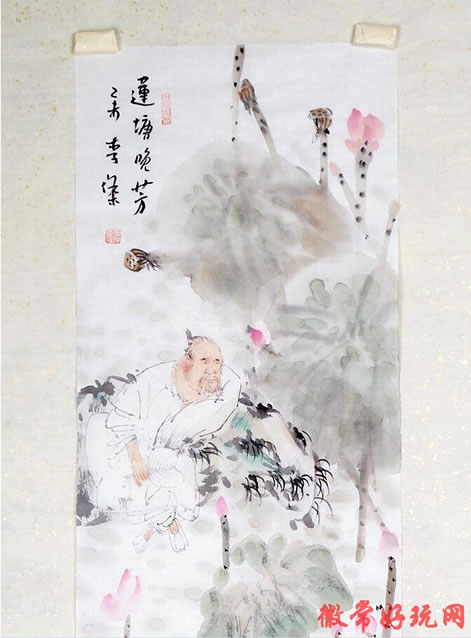 蓮塘晚芳
乙未 李
徽常好玩网